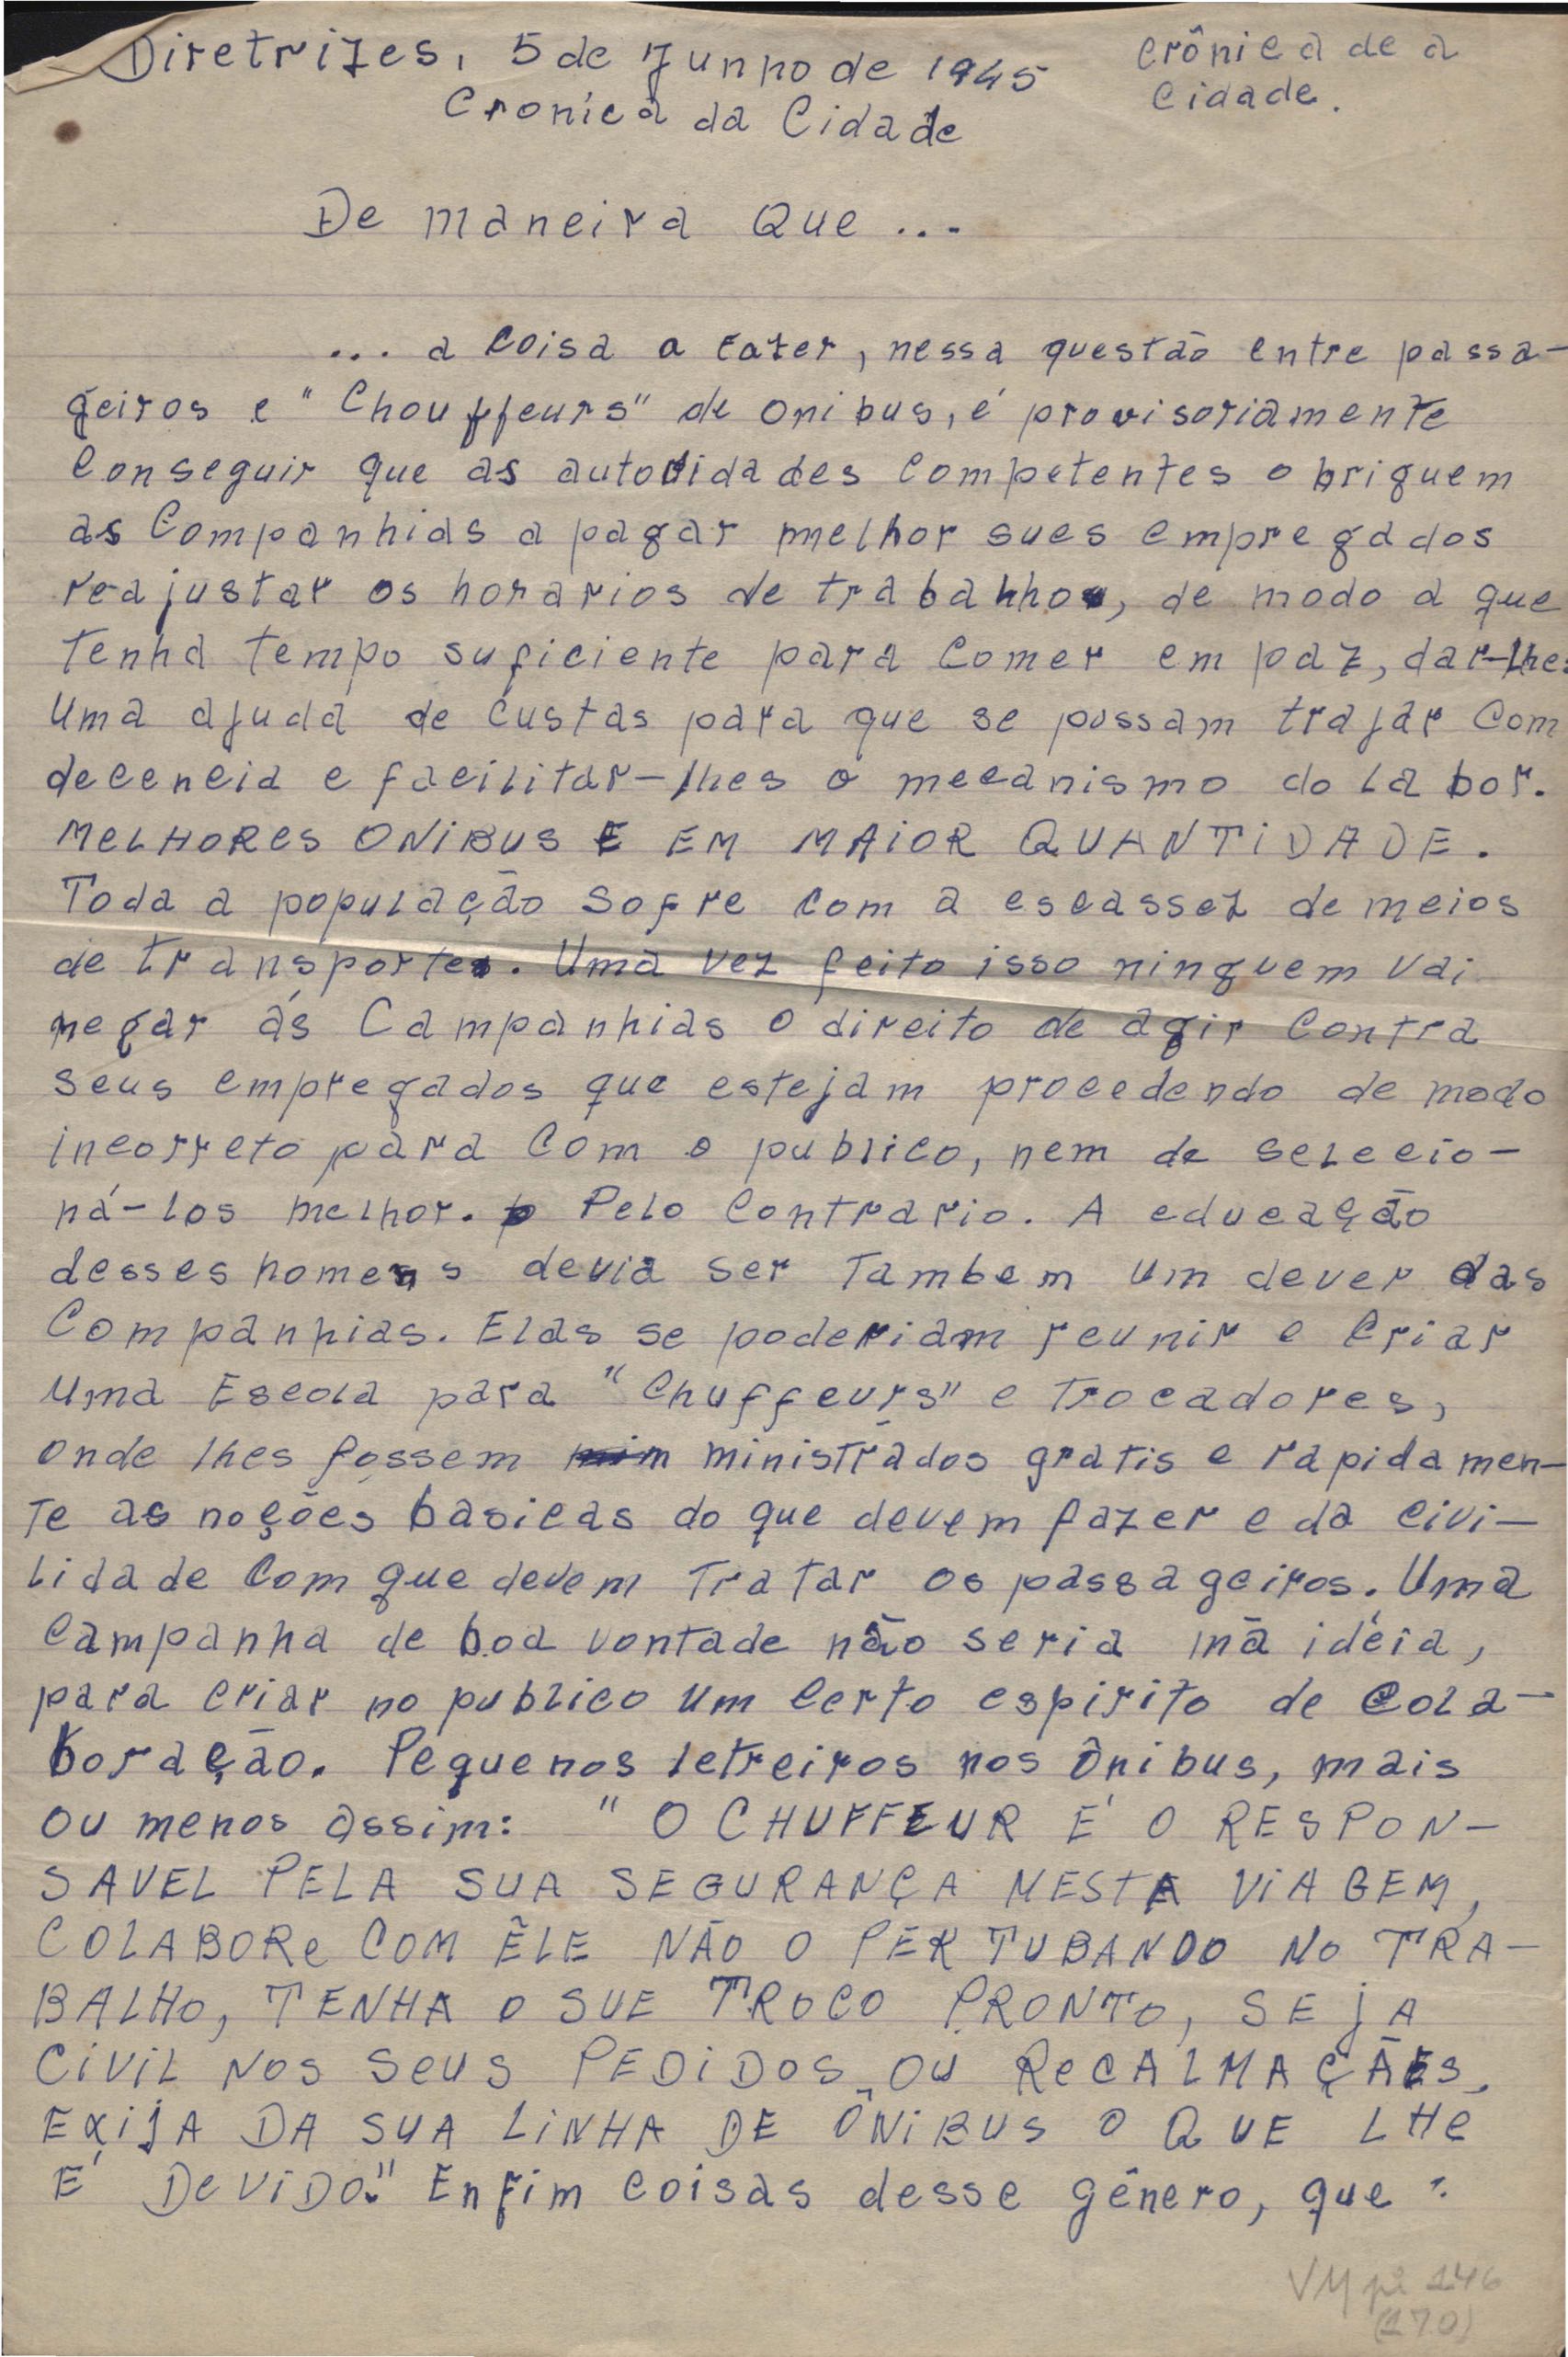 Diretrizes, 5 de Junho de 1945
Crônica de a
Cidade.
Cronica da Cidade
De maneira que ...
... a coisa a fazer, nessa questão entre passa-
geiros e "Chouffeurs" de onibus, é provisoriamente
conseguir que as autoridades competentes obriguem
as Companhias a pagar melhor sues empregados
reajustar os horarios de trabalho, de modo a que
tenha tempo suficiente para comer em paz, dar-lhes
uma ajuda de custas para que se possam trajar com
decencia e facilitar-lhes o mecanismo do labor.
MELHORES ONIBUS E EM MAIOR QUANTIDADE.
Toda a população sofre com a escassez de meios
de transporte. Uma vez feito isso ninguem vai
negar ás Campanhias o direito de agir contra
seus empregados que estejam procedendo de modo
incorreto para com o publico, nem de selecio-
ná-los melhor. Pelo contrario. A educação
desses homens devia ser tambem um dever das
Companhias. Elas se poderiam reunir e criar
uma Escola para "Chuffeurs" e trocadores,
onde lhes fossem ministrados gratis e rapidamen-
te as noções basicas do que devem fazer e da civi-
lidade com que devem tratar os passageiros. Uma
campanha de boa vontade não seria má idéia,
para criar no publico um certo espirito de cola-
boração. Pequenos letreiros nos ônibus, mais
ou menos assim: "O CHUFFEUR E' O RESPON-
SAVEL PELA SUA SEGURANÇA NESTA VIAGEM,
COLABORE COM ÊLE NÃO O PERTUBANDO NO TRA-
BALHO, TENHA O SUE TROCO PRONTO, SEJA
CIVIL NOS SEUS PEDIDOS OU RECALMAÇÃES,
EXIJA DA SUA LINHA DE ÔNIBUS O QUE LHE
E' DEVIDO." Enfim coisas desse gênero, que
VM pi 146
(170)